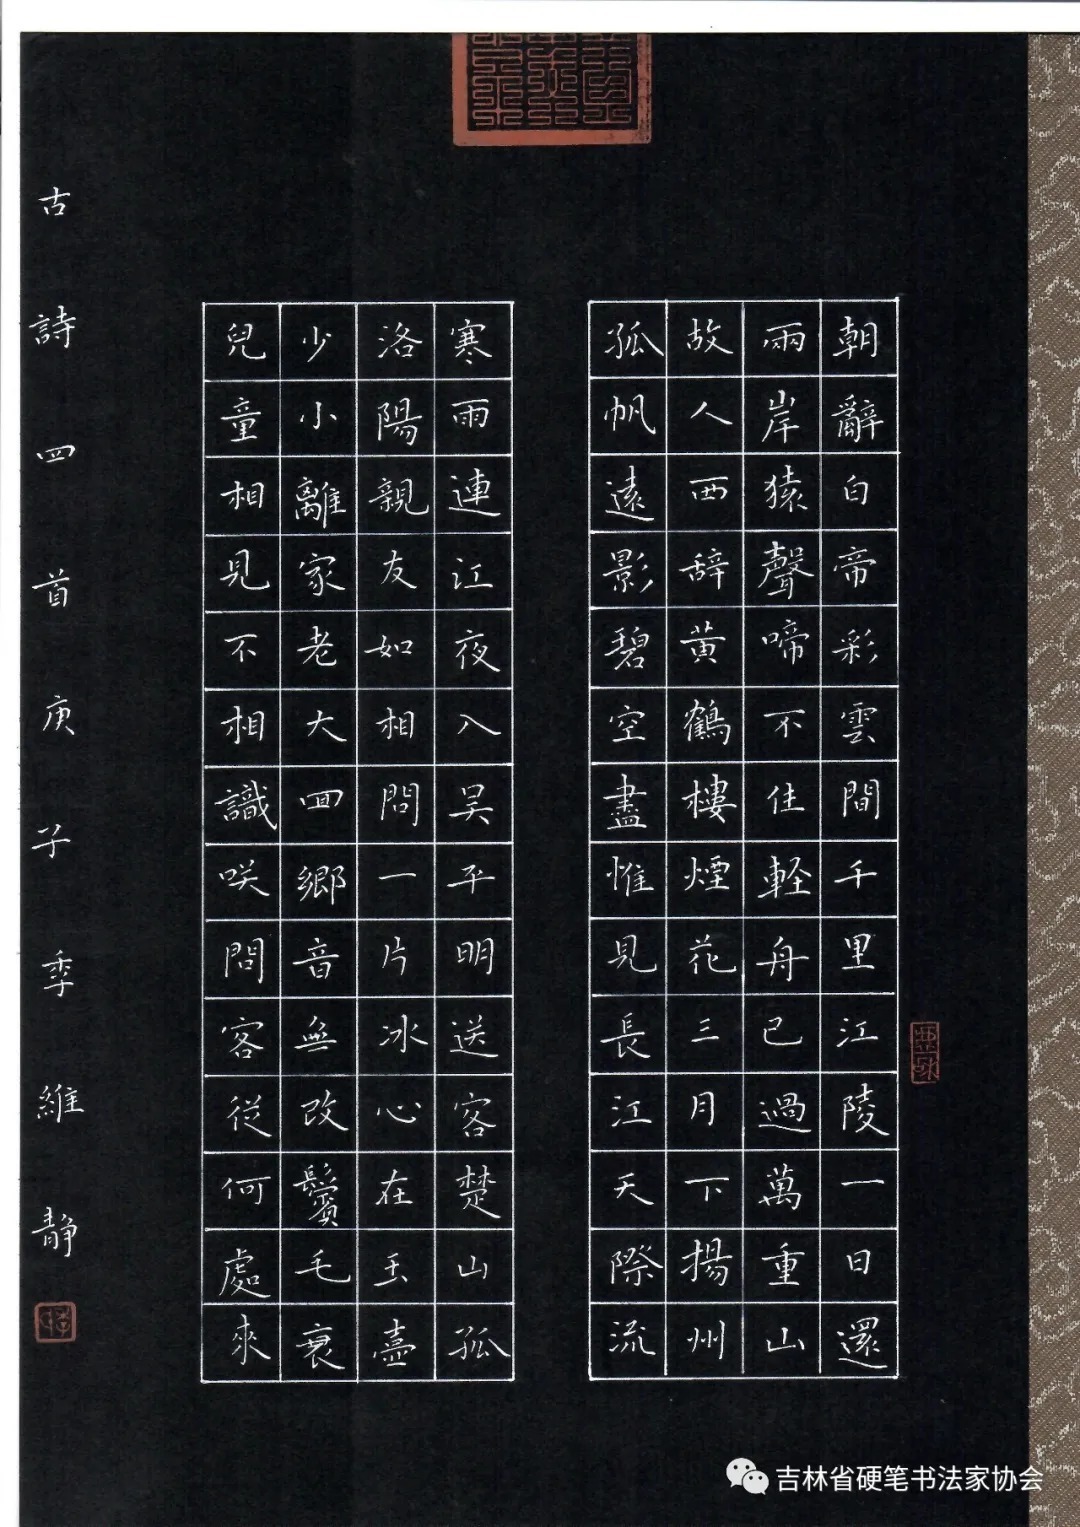 朝辭白帝彩雲間千里江陵一日還
兩岸猿聲啼不住軽舟已過萬重山
故人西辞黄鶴樓煙花三月下揚州
孤帆遠影碧空盡惟見長江天際流
寒雨連江夜入吴平明送客楚山孤
洛陽親友如相問一片冰心在玉壺
少小離家老大回鄉音無改鬢毛衰
兒童相見不相識咲問客從何處來
古詩四首庚子季維静
吉林省硬笔书法家协会